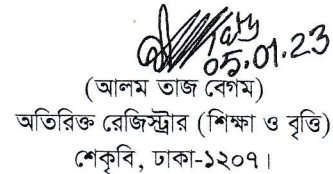 05.01.23
(আলম তাজ বেগম)
অতিরিক্ত রেজিস্ট্রার (শিক্ষা ও বৃত্তি)
শেকৃবি, ঢাকা-১২০৭।